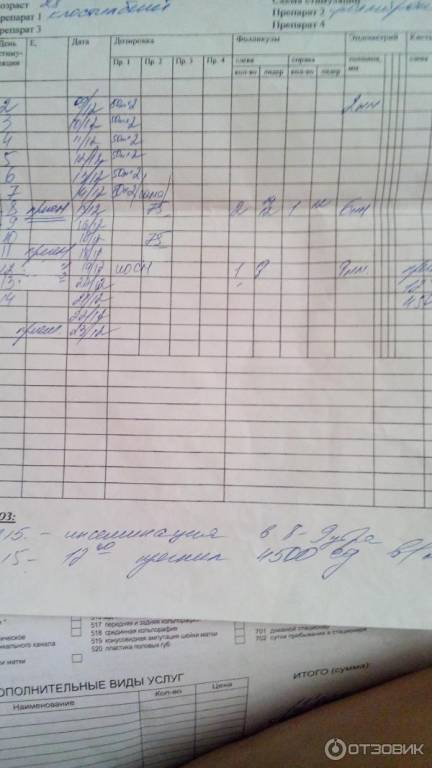 возраст
препарат 1 клостилбегит
Препарат 2
препарат 3
Препарат 4
День стиму- ляции Е2 Дата Дозировка Фолликулы Эндометрий
Пр. 1 Пр. 2 Пр. 3 Пр. 4 слева справа толщина, мм слева
кол-во лидер кол-во лидер
2 09/12 50мг*2 2мм
3 10/12 50мг*2
4 11/12 50мг*2
5 12/12 50мг*2
6 13/12 50мг*2
7 14/12 50мг*2
8 прием 15/12 75 2 12 1 12 6мм
9 16/12
10 17/12 75
11 прием 18/12
12 19/12 1 9мм
13 20/12
14 21/12
22/12
прием 23/12
ОЗ:
15. - инсеминация в 8-9 утра
15 - 12 00 прегнил 4500 ед в/м
517 передняя и задняя кольпорафия
518 срединная кольпорафия
519 конусовидная ампутация шейки матки
520 пластика половых губ
701 дневной стационар
702 сутки пребывания в стационаре
ческое
икального канала
ки матки
ДОПОЛНИТЕЛЬНЫЕ ВИДЫ УСЛУГ
ИТОГО (сумма)
Наименование Кол-во Цена
ОТЗОВИК